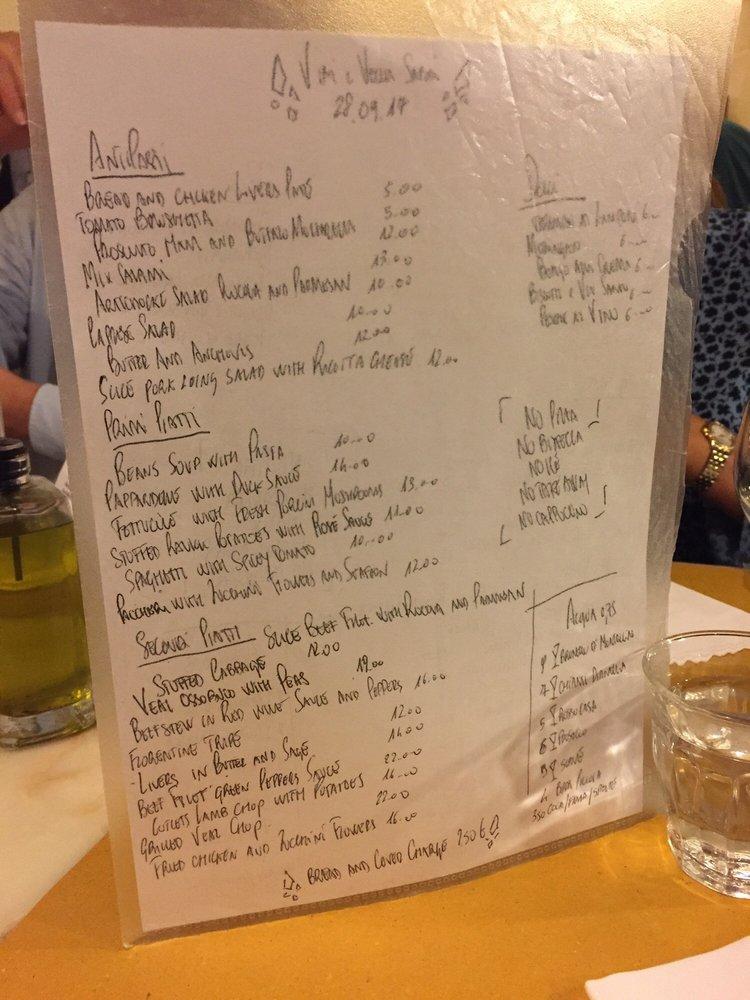 Vini e Vecchi Sapori
28.09.17
ANTIPASTI
BREAD AND CHICKEN LIVERS PATÉ 5.00
TOMATO BRUSCHETTA 5.00
PROSCIUTO HAM AND BUFALO MOZZARELLA 12.00
MIX SALAMI 13.00
ARTICHOCKE SALAD RUCOLA AND PARMESAN 10.00
CAPRESE SALAD 10.00
BUTTER AND ANCHOVIS 12.00
SLICE PORK LOING SALAD WITH RICOTTA CHEESE 12.00
PRIMI PIATTI
BEANS SOUP WITH PASTA 10.00
PAPPARDELLE WITH DUCK SAUCE 14.00
FETTUCINE WITH FRESH PORCINI MUSHROOMS 13.00
STUFFED RAVIOLI POTATOES WITH ROSÉ SAUCE 11.00
SPAGHETTI WITH SPICY TOMATO 10.00
PACCHERI WITH ZUCCHINI FLOWERS AND SAFFRON 12.00
SECONDI PIATTI
SLICE BEEF FILET WITH RUCOLA AND PARMESAN
STUFFED CABBAGE 12.00
VEAL OSSOBUCO WITH PEAS 19.00
BEEFSTEW IN RED WINE SAUCE AND PEPPERS 16.00
FLORENTINE TRIPE 12.00
LIVERS IN BUTTER AND SAGE 14.00
BEEF FILET GREEN PEPPERS SAUCE 22.00
CUTLETS LAMB CHOP WITH POTATOES 16.00
GRILLED VEAL CHOP 22.00
FRIED CHICKEN AND ZUCCHINI FLOWERS 16.00
BREAD AND COVER CHARGE 2.50 €
DOLCI
TIRAMISU AI LAMPONI 6
MERINGATO 6
BONGO ALLA CREMA 6
BISCOTTI E VIN SANTO 6
PESCHE AL VINO 6
NO PIZZA
NO BISTECCA
NO ICE
NO TAKE AWAY
NO CAPPUCCINO
ACQUA 0,75
9 BRUNELLO D' MONTALCINO
7 CHIANTI
5 ROSSO CASA
6 PROSECCO
4 BIRRA PICCOLA
3.50 COCA/FANTA/SPRITE